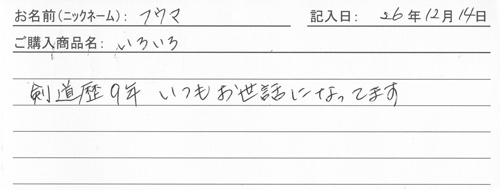 お名前(ニックネーム): フウマ 記入日: 26年12月14日
ご購入商品名: いろいろ
剣道歴9年 いつもお世話になってます